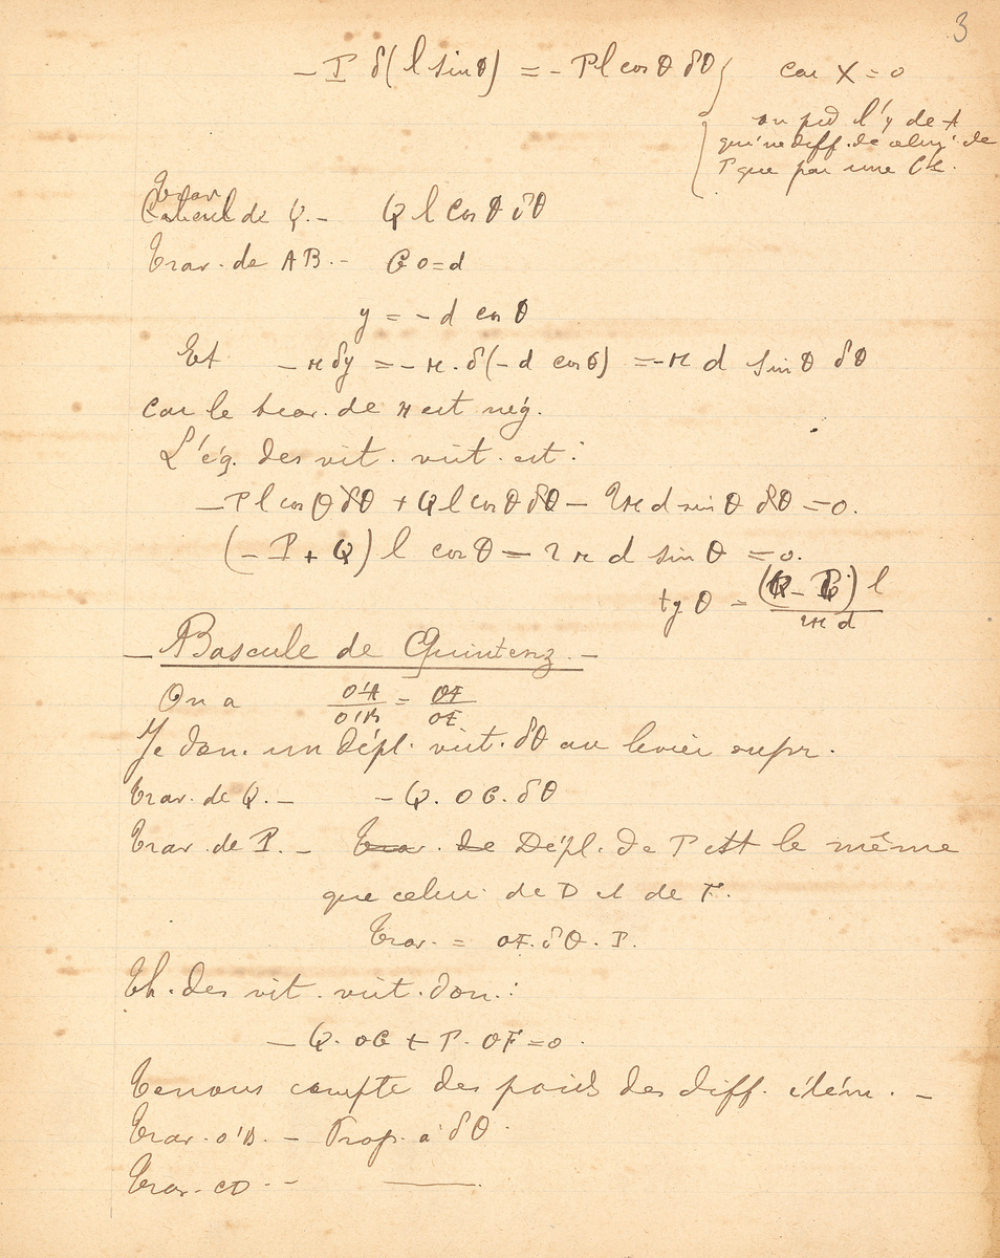 3
- P δ(l sin θ) = - Pl cos θ δθ } car X = 0
on prd l'y de A
qui ne diff. de celui de
P que par une Cte.
Trav
de Q. - Q l cos θ δθ
Trav. de AB. - GO = d
y = - d cos θ
Et - π δy = - π . δ(- d cos θ) = - π d sin θ δθ
Car le trav. de π est nég.
L'éq. des vit. virt. est :
- P l cos θ δθ + Q l cos θ δθ - 2π d sin θ δθ = 0.
(- P + Q) l cos θ - 2 π d sin θ = 0.
tg θ = (Q - P) l / 2π d
- Bascule de Quintenz. -
On a O'A / O'B = OF / OE
Je don. un dépl. virt. δθ au levier supr.
Trav. de Q. - - Q. OC. δθ
Trav. de P. - Trav. de Dépl. de P est le même
que celui de D et de F.
Trav. = OF. δθ. P.
Th. des vit. virt. don. :
- Q. OC + P. OF = 0.
Tenons compte des poids des diff. élém. -
Trav. O'B. - Prop. à δθ.
Trav. CD. -